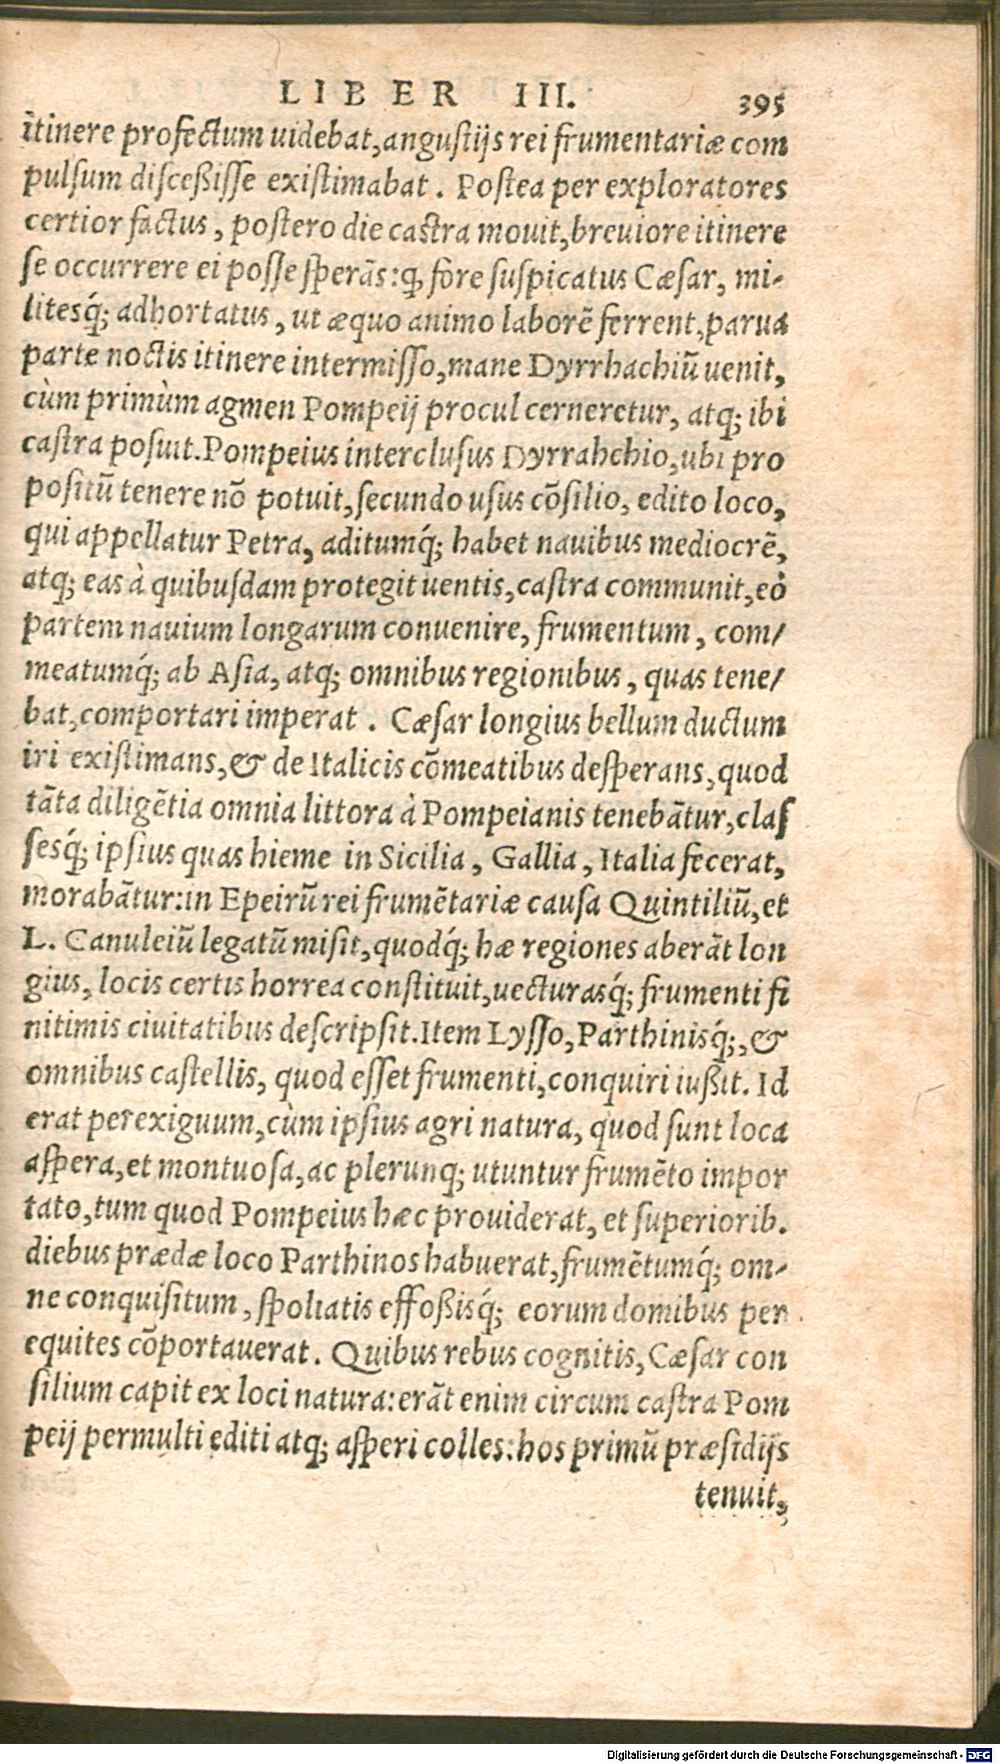 LIBER III. 395
itinere profectum uidebat, angustijs rei frumentariæ com
pulsum disceßisse existimabat. Postea per exploratores
certior factus, postero die castra mouit, breuiore itinere
se occurrere ei posse sperãs: ꝗ fore suspicatus Cæsar, mi-
litesq́; adhortatus, ut æquo animo laborẽ ferrent, parua
parte noctis itinere intermisso, mane Dyrrhachiũ uenit,
cùm primùm agmen Pompeij procul cerneretur, atq; ibi
castra posuit. Pompeius interclusus Dyrrahchio, ubi pro
positũ tenere nõ potuit, secundo usus cõsilio, edito loco,
qui appellatur Petra, aditumq́; habet nauibus mediocrẽ,
atq; eas à quibusdam protegit uentis, castra communit, eò
partem nauium longarum conuenire, frumentum, com/
meatumq́; ab Asia, atq; omnibus regionibus, quas tene/
bat, comportari imperat. Cæsar longius bellum ductum
iri existimans, & de Italicis cõmeatibus desperans, quod
tãta diligẽtia omnia littora à Pompeianis tenebãtur, clas
sesq́; ipsius quas hieme in Sicilia, Gallia, Italia fecerat,
morabãtur: in Epeirũ rei frumẽtariæ causa Quintiliũ, et
L. Canuleiũ legatũ misit, quodq́; hæ regiones aberãt lon
gius, locis certis horrea constituit, uecturasq́; frumenti fi
nitimis ciuitatibus descripsit. Item Lysso, Parthinisq́;, &
omnibus castellis, quod esset frumenti, conquiri iußit. Id
erat perexiguum, cùm ipsius agri natura, quod sunt loca
aspera, et montuosa, ac plerunq; utuntur frumẽto impor
tato, tum quod Pompeius hæc prouiderat, et superiorib.
diebus prædæ loco Parthinos habuerat, frumẽtumq́; om-
ne conquisitum, spoliatis effoßisq́; eorum domibus per
equites cõportauerat. Quibus rebus cognitis, Cæsar con
silium capit ex loci natura: erãt enim circum castra Pom
peij permulti editi atq; asperi colles: hos primũ præsidijs
tenuit,
Digitalisierung gefördert durch die Deutsche Forschungsgemeinschaft - DFG